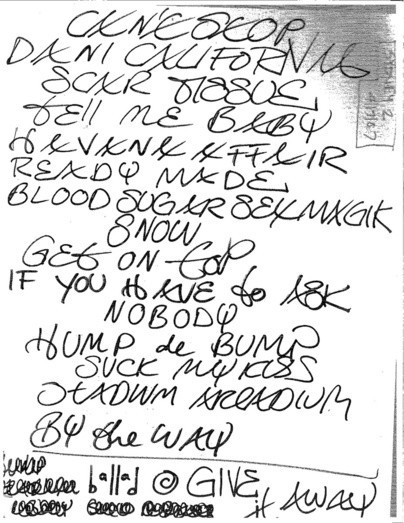 CAN'T STOP
DANI CALIFORNIA
SCAR TISSUE
TELL ME BABY
HAVANA AFFAIR
READY MADE
BLOOD SUGAR SEX MAGIK
SNOW
GET ON TOP
IF YOU HAVE to ASK
NOBODY
HUMP de BUMP
SUCK MY KISS
STADIUM ARCADIUM
BY the WAY
ballad @ GIVE it AWAY
SYDNEY 2